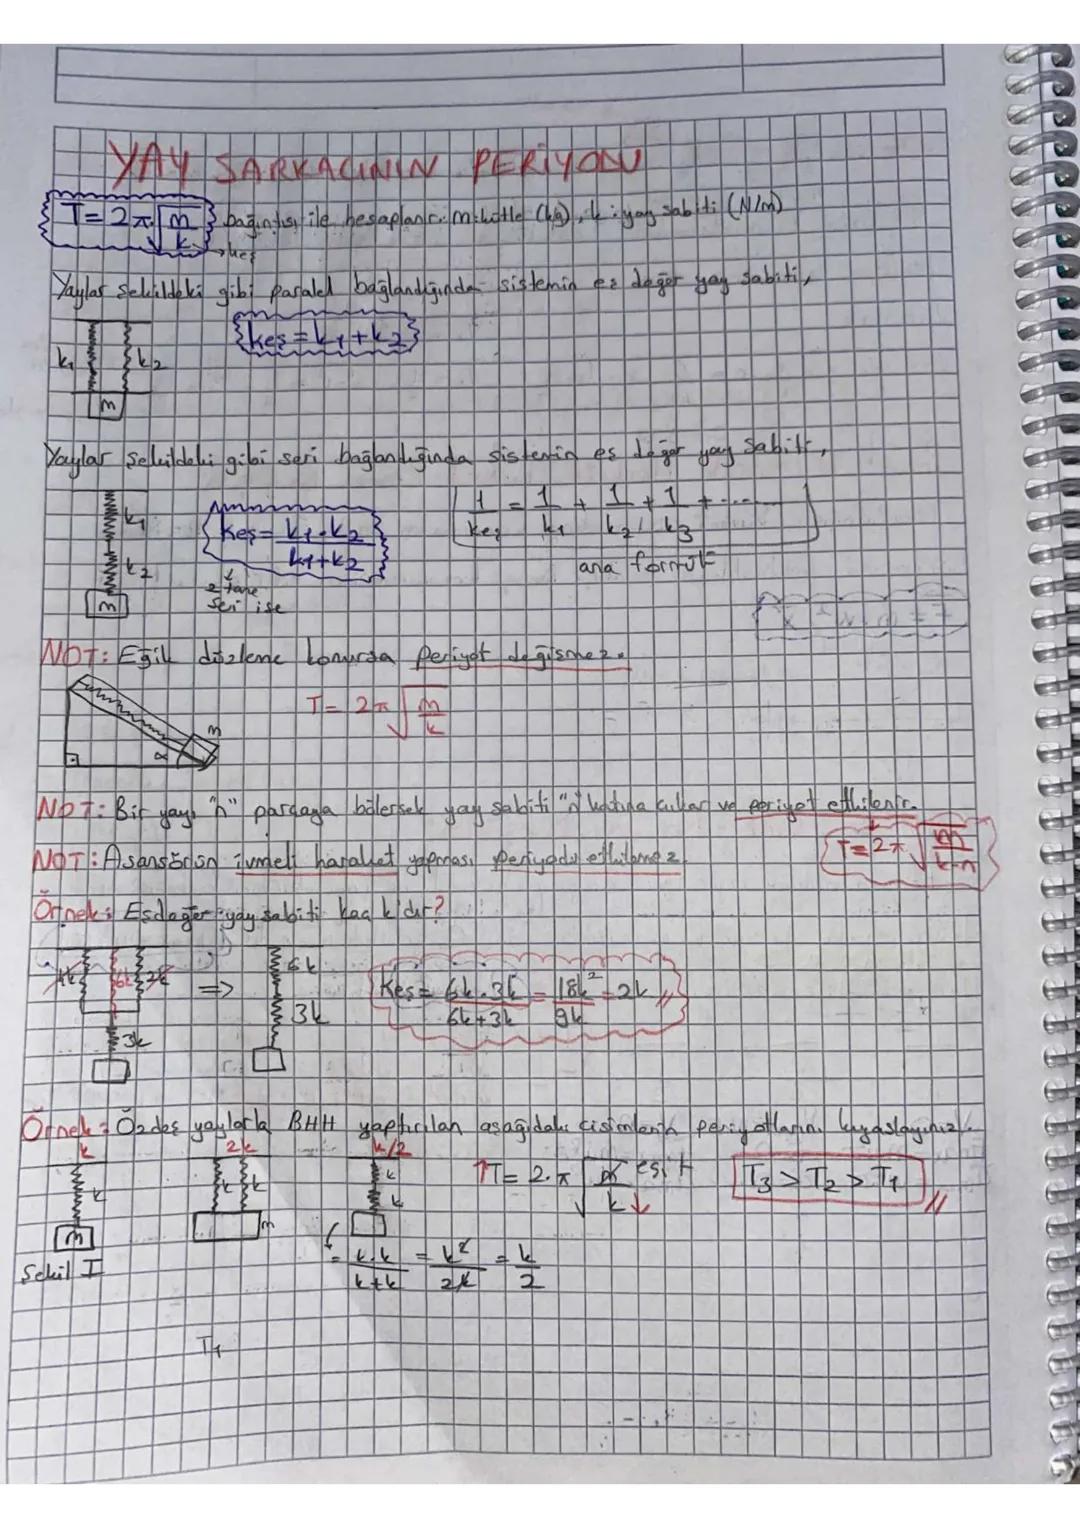 YAY SARKACININ PERİYODU
T = 2π√m/k bağıntısı ile hesaplanır. m: kütle (kg), k: yay sabiti (N/m)
→ keş
Yaylar şekildeki gibi paralel bağlandığında sistemin eş değer yay sabiti,
keş = k1 + k2
k1 k2
m
Yaylar şekildeki gibi seri bağlandığında sistemin eş değer yay sabiti,
k1
k2
m
keş = k1.k2 / k1+k2
2 tane
seri ise
1/keş = 1/k1 + 1/k2 + 1/k3 + ......
ana formül
NOT: Eğik düzleme konursa periyot değişmez.
m
α
T = 2π√m/k
NOT: Bir yayı "n" parçaya bölersek yay sabiti "n" katına çıkar ve periyot etkilenir.
T = 2π√m/k.n
NOT: Asansörün ivmeli hareket yapması periyodu etkilemez.
Örnek: Eşdeğer yay sabiti kaç k'dır?
4k 6k 2k
3k
=>
6k
3k
keş = 6k.3k / 6k+3k = 18k² / 9k = 2k //
Örnek: Özdeş yaylarla BHH yaptırılan aşağıdaki cisimlerin periyotlarını kıyaslayınız.
k 2k k/2
k k k k k
m m
Şekil I
↑T = 2.π√m/k↓ eşit
T3 > T2 > T1 //
= k.k / k+k = k² / 2k = k/2
T1